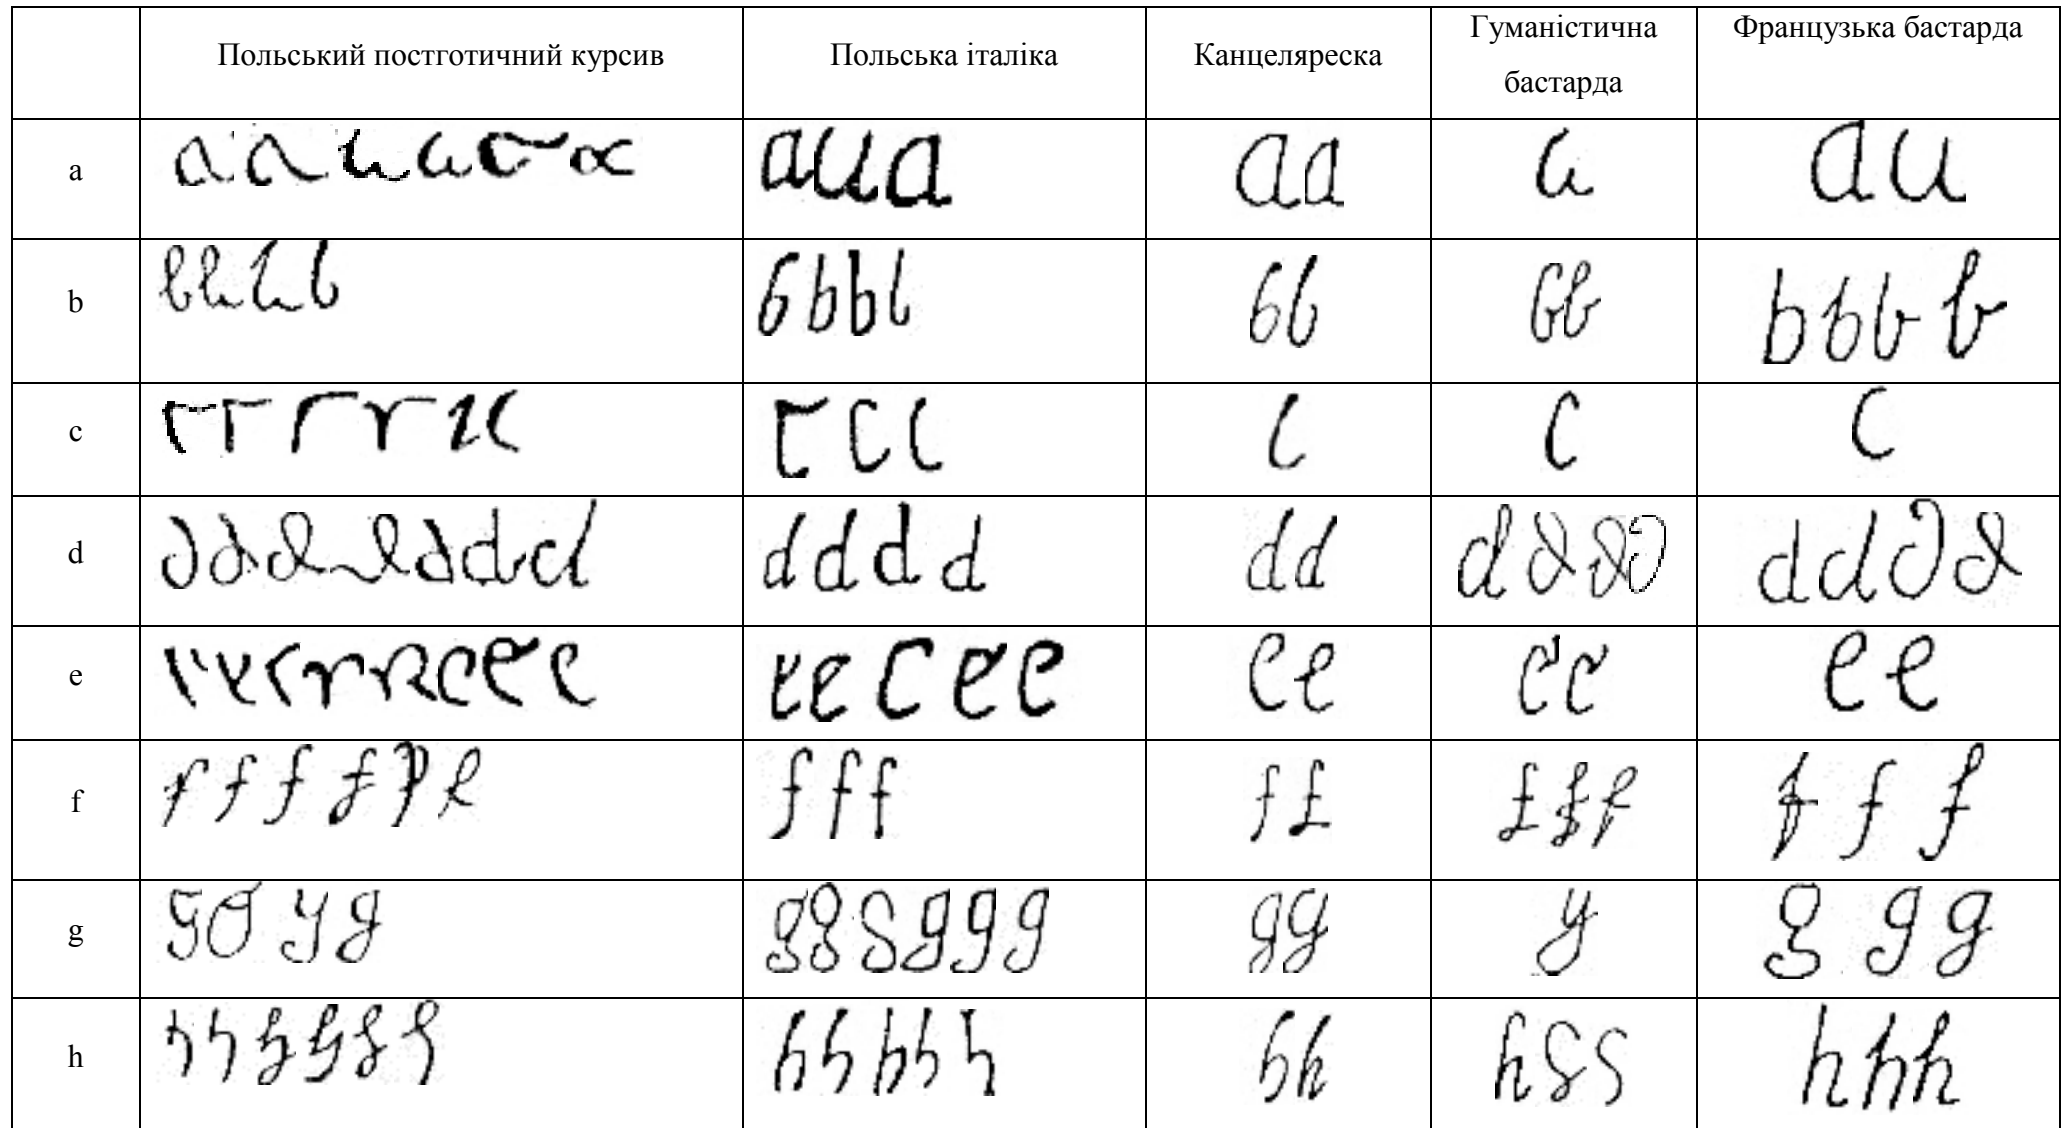 Польський постготичний курсив Польська італіка Канцеляреска Гуманістична бастарда Французька бастарда
a a a a a a a a u a a a a a u
b b b b b b b b b b b b b b b b b
c c c c c c c c c c c c c
d d d d d d d d d d d d d d d d d d d d d
e e e e e e e e e e e e e e e e e e e e
f f f f f f f f f f f f f f f f f f
g g g y g g g g g g g g g y g g g
h h h h h h h h h h h h h h h h h h h h